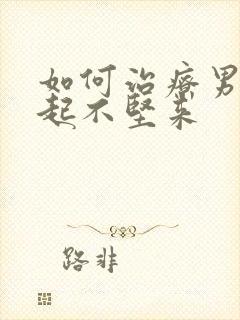 如何治疗男
起不坚来
路非